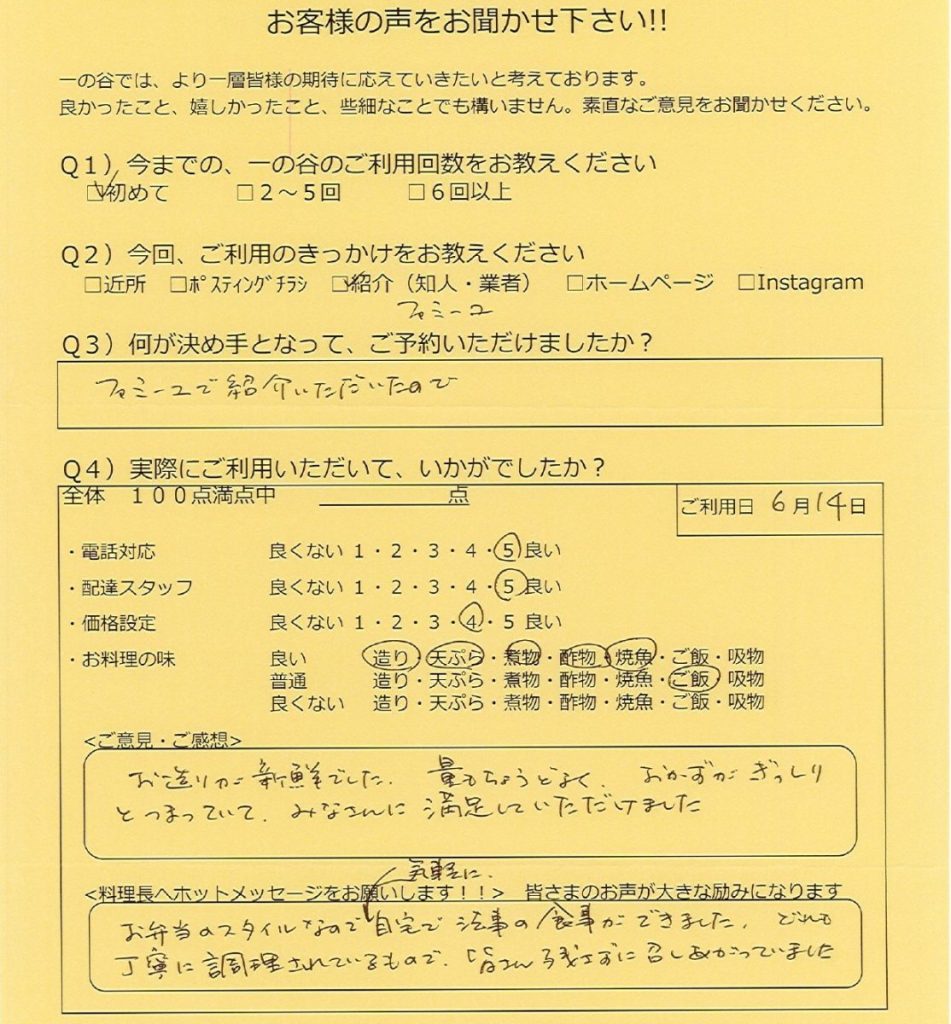 お客様の声をお聞かせ下さい!!
一の谷では、より一層皆様の期待に応えていきたいと考えております。
良かったこと、嬉しかったこと、些細なことでも構いません。素直なご意見をお聞かせください。
Q1）今までの、一の谷のご利用回数をお教えください
☑初めて □２～５回 □６回以上
Q2）今回、ご利用のきっかけをお教えください
□近所 □ﾎﾟｽﾃｨﾝｸﾞﾁﾗｼ ☑紹介（知人・業者） □ホームページ □Instagram
ファミーユ
Q3）何が決め手となって、ご予約いただけましたか？
ファミーユで紹介いただいたので
Q4）実際にご利用いただいて、いかがでしたか？
全体 １００点満点中 ＿＿＿＿点
ご利用日 6月14日
・電話対応 良くない 1・2・3・4・5 良い
・配達スタッフ 良くない 1・2・3・4・5 良い
・価格設定 良くない 1・2・3・4・5 良い
・お料理の味 良い 造り・天ぷら・煮物・酢物・焼魚・ご飯・吸物
普通 造り・天ぷら・煮物・酢物・焼魚・ご飯・吸物
良くない 造り・天ぷら・煮物・酢物・焼魚・ご飯・吸物
<ご意見・ご感想>
お造りが新鮮でした。量もちょうどよく、おかずがぎっしり
とつまっていて、みなさんに満足していただけました
気軽に、
<料理長へホットメッセージをお願いします！！> 皆さまのお声が大きな励みになります
お弁当のスタイルなので自宅で法事の食事ができました。どれも
丁寧に調理されているもので、皆さん残さずに召しあがっていました